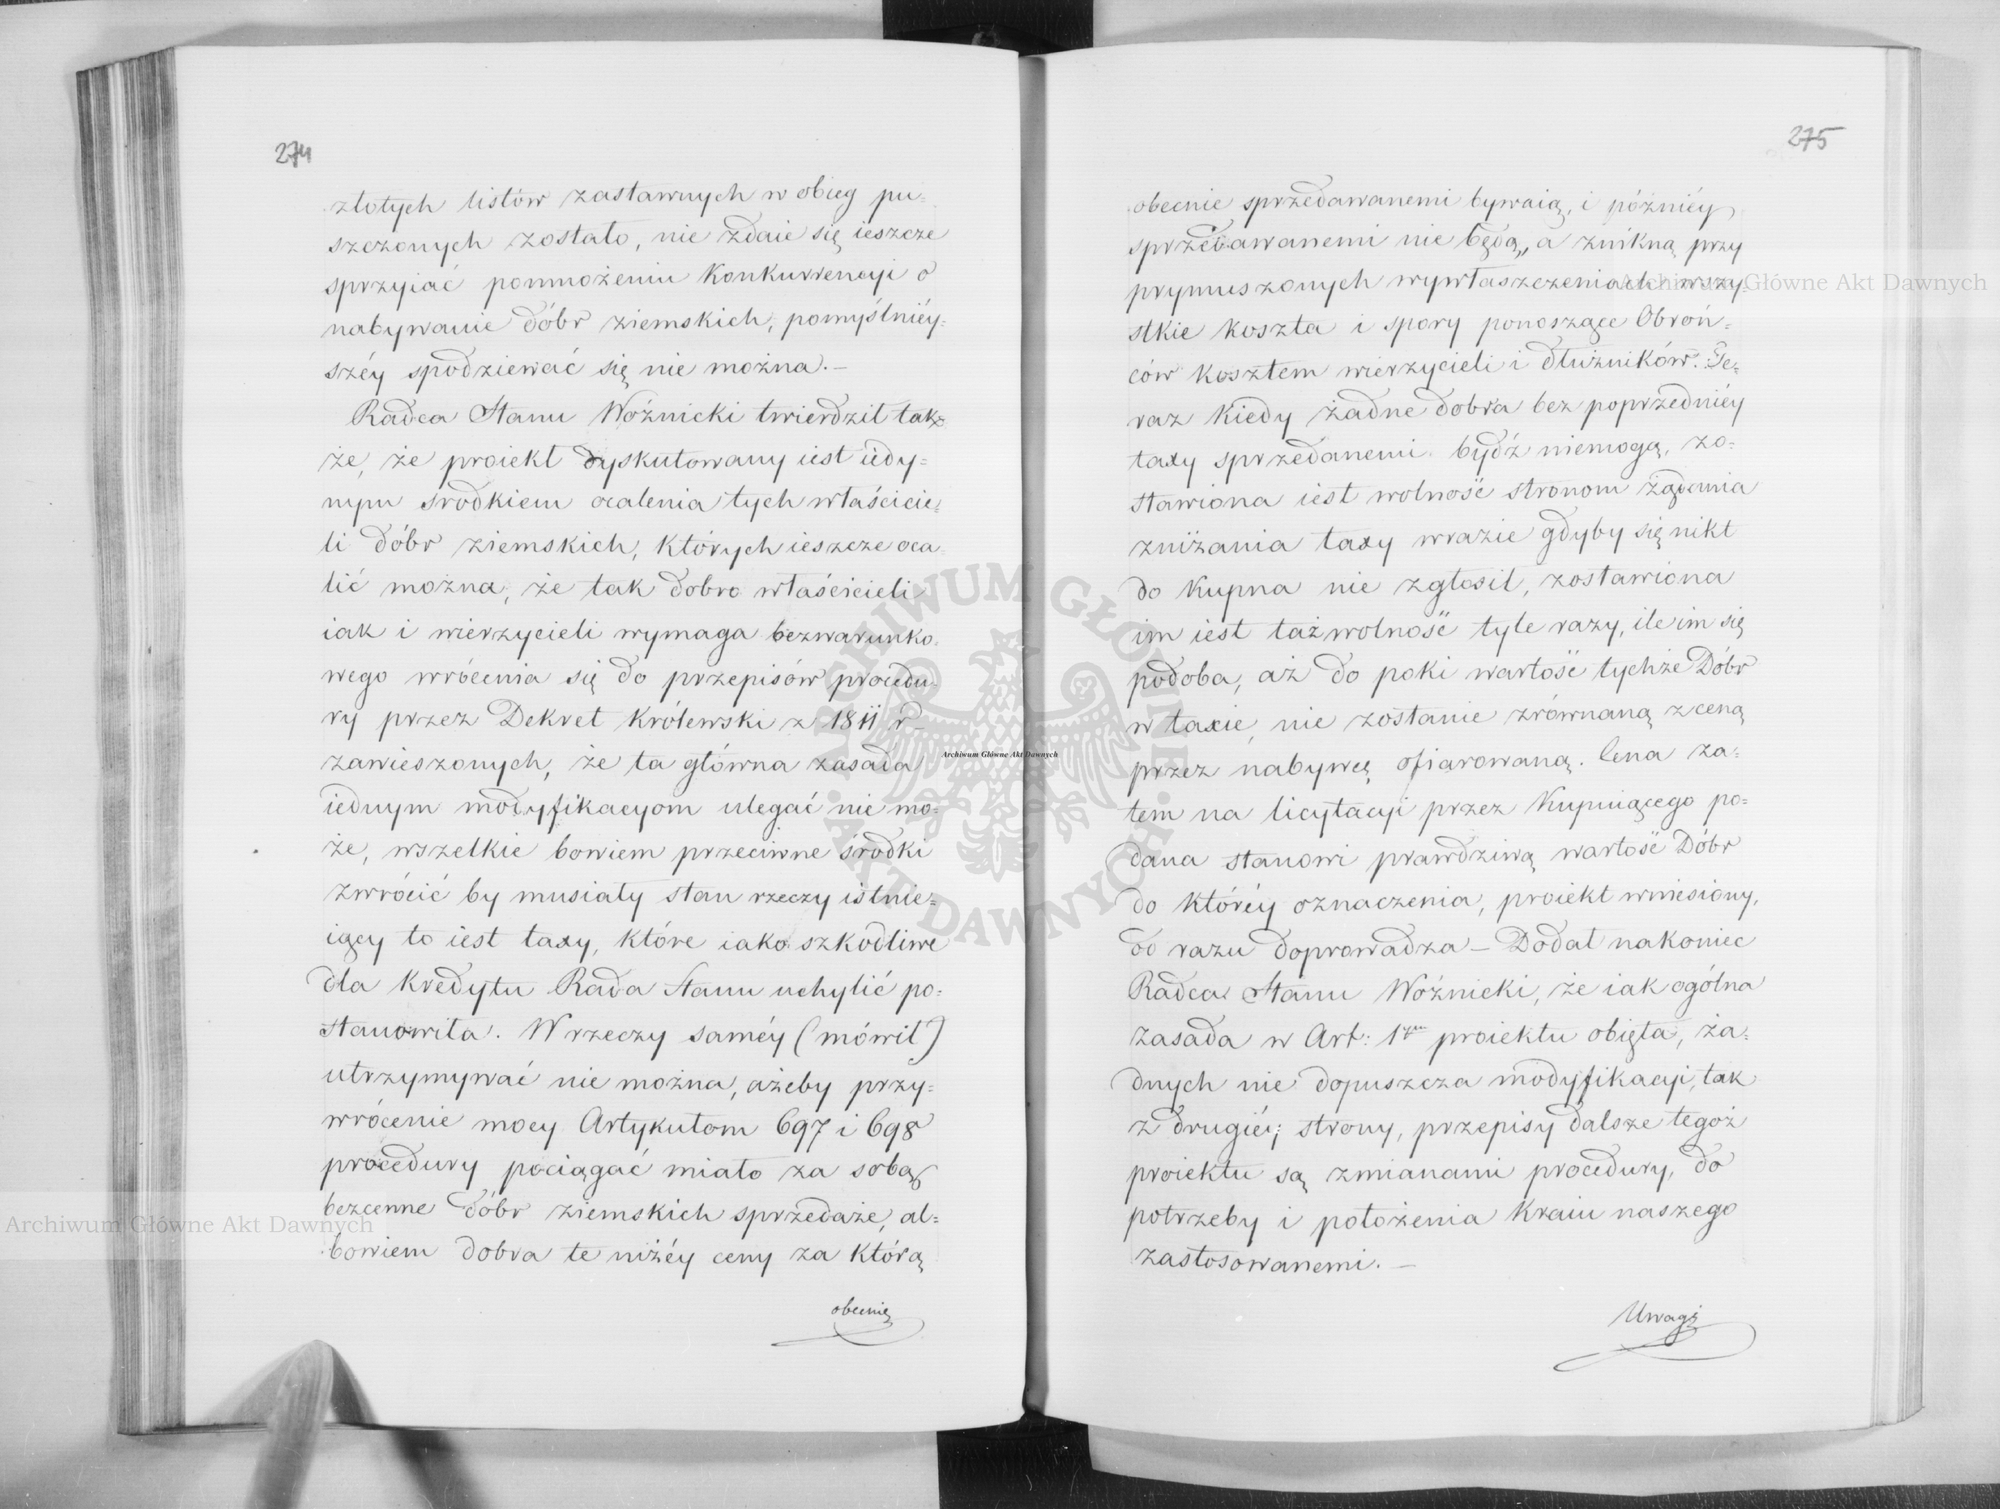 274
złotych listów zastawnych w obieg pu=
szczonych zostało, nie zdaie się ieszcze
sprzyiać pomnożeniu Konkurrencyi o
nabywanie dóbr ziemskich, pomyślniéy=
széy spodziewać się nie można.—
Radca Stanu Woźnicki twierdził tak=
że, że proiekt dyskutowany iest iedy=
nym srodkiem ocalenia tych właścicie=
li dóbr ziemskich, których ieszcze oca=
lić można, że tak dobro właścicieli
iak i wierzycieli wymaga bezwarunko=
wego wrócenia się do przepisów procedu=
ry przez Dekret Królewski z 1811 r
zawieszonych, że ta główna zasada
iednym modyfikacyom ulegać nie mo=
że, wszelkie bowiem przeciwne środki
zwrócić by musiały stan rzeczy istnie=
iący to iest taxy, które iako szkodliwe
dla Kredytu Rada Stanu uchylić po=
stanowiła. W rzeczy saméy (mówił)
utrzymywać nie można, ażeby przy=
wrócenie mocy Artykułom 697 i 698
procedury pociągać miało za sobą
bezcenne dóbr ziemskich sprzedaże, al=
bowiem dobra te niżéy ceny za którą
obecnie
275
obecnie sprzedawanemi bywaią, i późniéy
sprzedawanemi nie będą, a znikną przy
prymuszonych wywłaszczeniach wszy=
stkie koszta i spory ponoszące Obroń=
ców kosztem wierzycieli i dłużników. Te=
raz Kiedy żadne dobra bez poprzedniéy
taxy sprzedanemi bydź niemogą, zo=
stawiona iest wolność stronom żądania
zniżania taxy wrazie gdyby się nikt
do Kupna nie zgłosił, zostawiona
im iest taż wolność tyle razy, ile im się
podoba, aż do poki wartość tychże Dóbr
w taxie, nie zostanie zrównaną z ceną
przez nabywcę ofiarowaną. Cena za=
tem na licytacyi przez Kupuiącego po=
dana stanowi prawdziwą wartość Dóbr
do któréy oznaczenia, proiekt wniesiony,
od razu doprowadza — Dodał nakoniec
Radca Stanu Woźnicki, że iak ogólna
zasada w Art: 1ym proiektu obięta, ża=
dnych nie dopuszcza modyfikacyi, tak
z drugiéj strony, przepisy dalsze tegoż
proiektu są zmianami procedury, do
potrzeby i położenia Kraiu naszego
zastosowanemi.—
Uwagi
Archiwum Główne Akt Dawnych
Archiwum Główne Akt Dawnych
Archiwum Główne Akt Dawnych
ARCHIWUM GŁÓWNE
AKT DAWNYCH